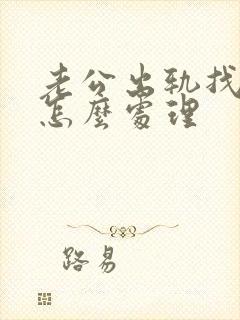 老公出轨找
怎麼處理
路易